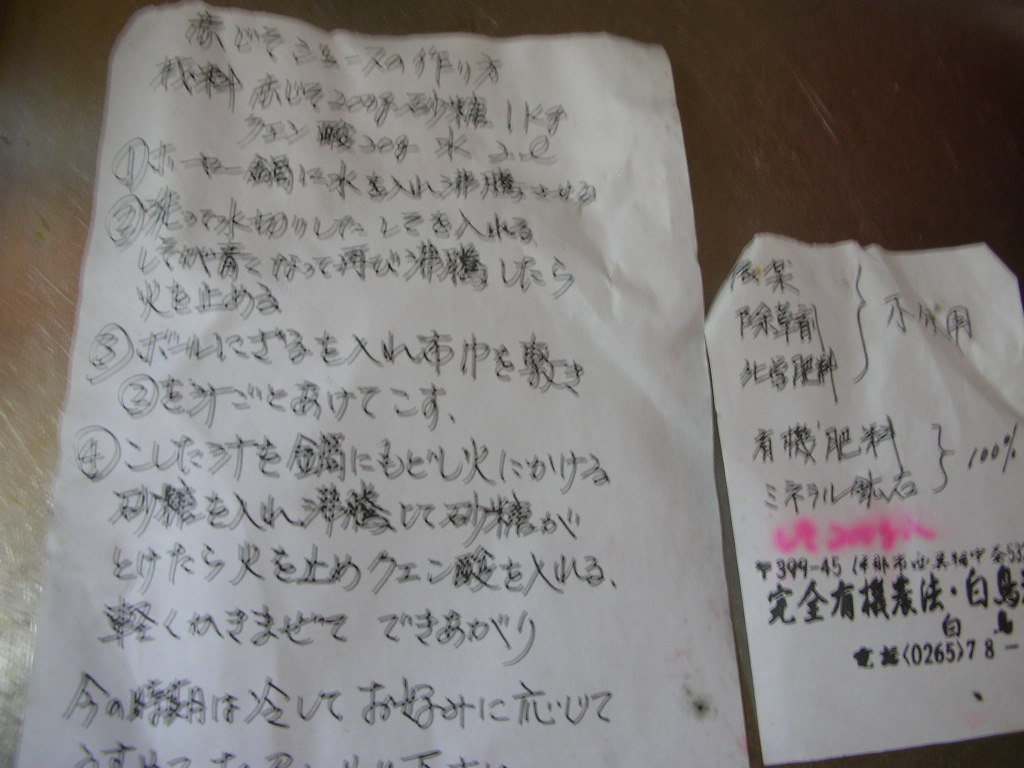 赤じそジュースの作り方
材料 赤じそ300g 砂糖 1kg
クエン酸20g 水 2ℓ
①ホーロー鍋に水を入れ沸騰させる
②洗って水切りしたしそを入れる
しそが青くなって再び沸騰したら
火を止める
③ボールにざるを入れ布巾を敷き
②を汁ごとあけてこす、
④こした汁を鍋にもどし火にかける
砂糖を入れ沸騰して砂糖が
とけたら火を止めクエン酸を入れる、
軽くかきまぜて できあがり
今の時期は冷して お好みに応じて
うすめて
下さい
農薬
除草剤
化学肥料
不使用
有機肥料
ミネラル鉱石
100%
〒399-45 伊那市西箕輪中条53
完全有機農法・白鳥
白鳥
電話(0265)78-